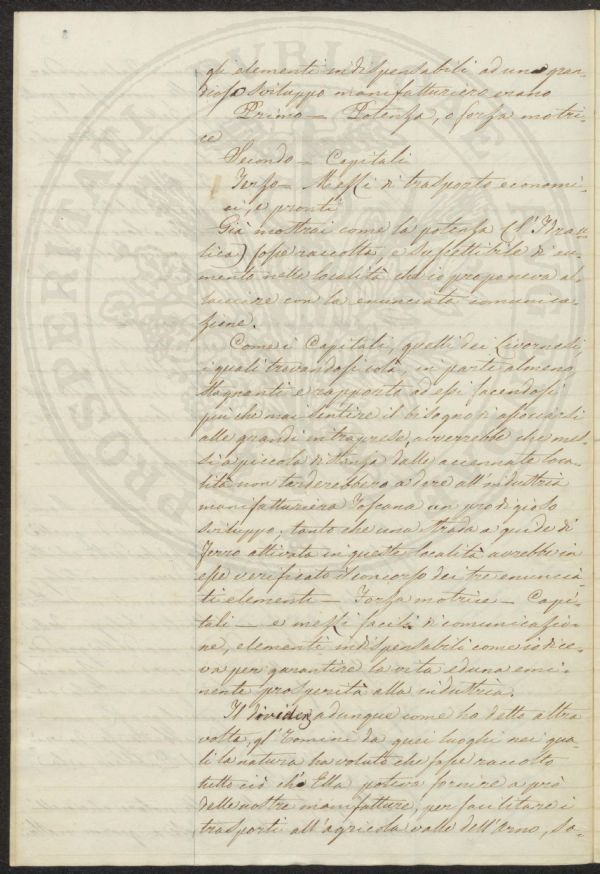 gli elementi indispensabili ad una gran-
dioso sviluppo manifatturiero erano
Primo — Potenza, o forza motri-
ce
Secondo — Capitali
Terzo — Mezzi di trasporto economi-
ci, e pronti
Già mostrai come la potenza (l'Idrau-
lica) fosse raccolta, e suscettibile di au-
mento nelle località che io proponeva al-
lacciare con la enunciata comunica-
zione.
Come i Capitali, quelli dei Livornesi,
i quali trovandosi colà, in parte almeno
stagnanti e rapporto ad essi facendosi
più che mai sentire il bisogno d'associarsi
alle grandi intraprese, avverrebbe che mes-
si a piccola distanza dalle accennate loca-
lità non tarderebbero a dare all'industria
manifatturiera Toscana un prodigioso
sviluppo, tanto che una strada a guide di
ferro attivata in queste località avrebbe in
esse verificato il concorso dei tre enuncia-
ti elementi — Forza motrice — Capi-
tali — e mezzi facili di comunicazio-
ne, elementi indispensabili come io dice-
va per garantire la vita ed una emi-
nente prosperità alla industria.
Il divider adunque come ho detto altra
volta, gl'Uomini da quei luoghi nei qua-
li la natura ha voluto che fosse raccolto
tutto ciò ch'Ella poteva fornire a prò
delle nostre manifatture, per facilitare i
trasporti all'agricola valle dell'Arno, sa-
PROSPERITATI PUBLICAE